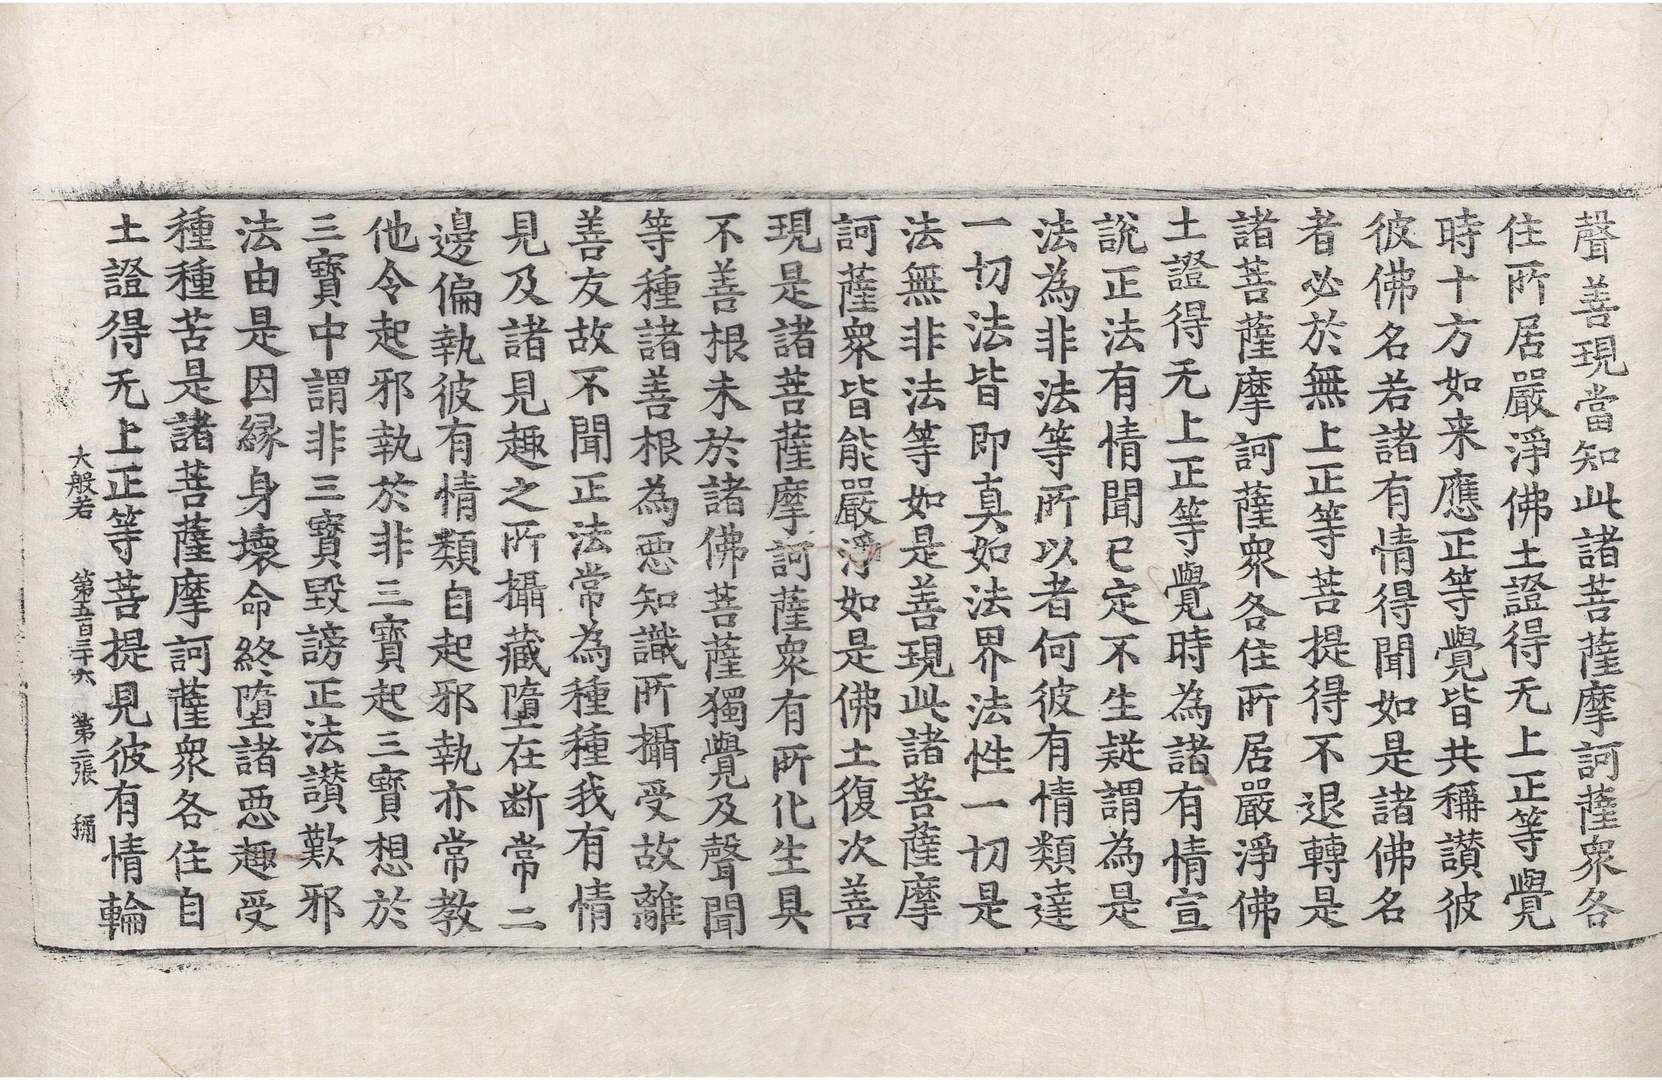 聲善現當知此諸菩薩摩訶薩衆各
住所居嚴淨佛土證得无上正等覺
時十方如来應正等覺皆共稱讃彼
彼佛名若諸有情得聞如是諸佛名
者必於無上正等菩提得不退轉是
諸菩薩摩訶薩衆各住所居嚴淨佛
土證得无上正等覺時為諸有情宣
說正法有情聞已定不生疑謂為是
法為非法等所以者何彼有情類達
一切法皆即真如法界法性一切是
法無非法等如是善現此諸菩薩摩
訶薩衆皆能嚴淨如是佛土復次善
現是諸菩薩摩訶薩衆有所化生具
不善根未於諸佛菩薩獨覺及聲聞
等種諸善根為惡知識所攝受故離
善友故不聞正法常為種種我有情
見及諸見趣之所攝藏墮在断常二
邊偏執彼有情類自起邪執亦常教
他令起邪執於非三寶起三寶想於
三寶中謂非三寶毀謗正法讃歎邪
法由是因縁身壞命終墮諸惡趣受
種種苦是諸菩薩摩訶薩衆各住自
土證得无上正等菩提見彼有情輪
大般若 第五百三十六 第二張 稱